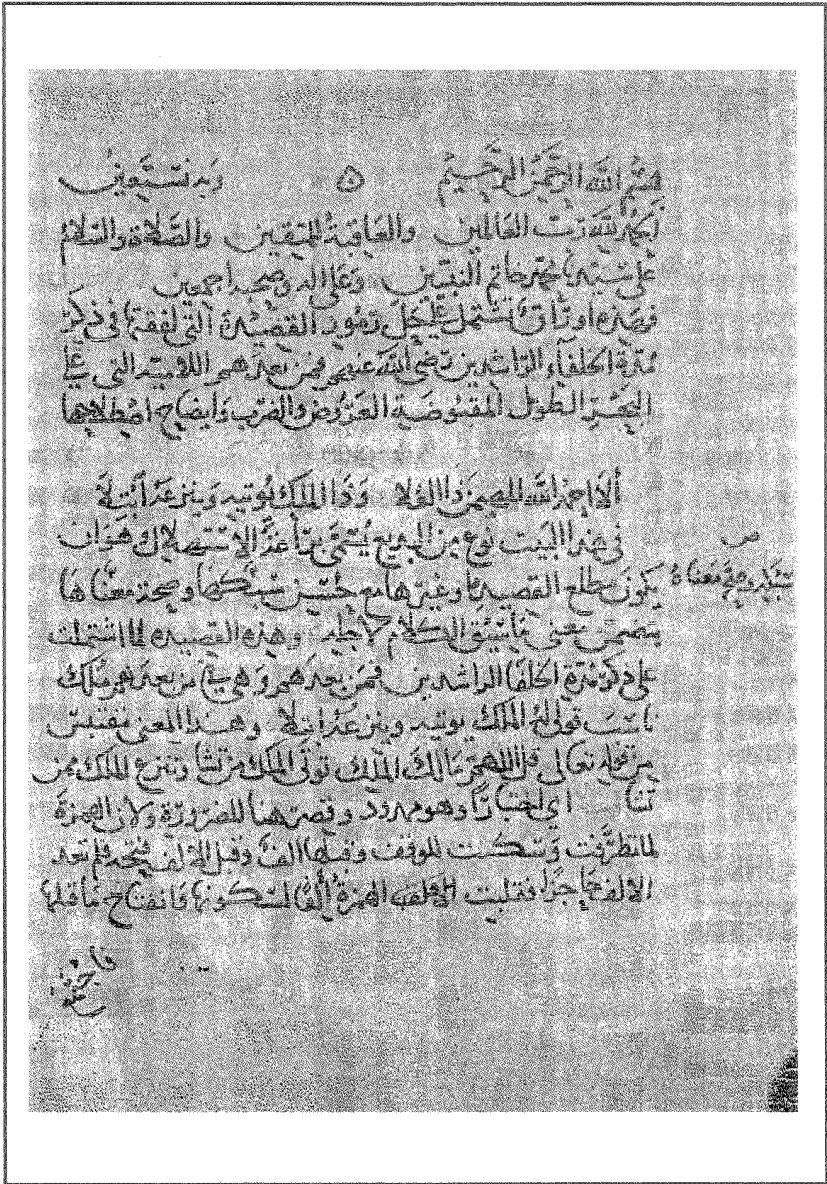 بسم الله الرحمن الرحيم ٥ وبه نستعين
الحمد لله رب العالمين والعاقبة للمتقين والصلاة والسلام
على سيدنا محمد خاتم النبيين وعلى اله وصحبه اجمعين
فهذه اوراق تشتمل على حل رموز القصيدة التي لفقتها في ذكر
مدة الخلفاء الراشدين رضي الله عنهم فمن بعدهم اللامية التي على
البحر الطويل المقبوضة العروض والضرب وايضاح اصطلاحها
ألا احمد الله المهيمن ذا الولا وذا الملك يوتيه وينزعه ابتلا
في هذا البيت نوع من البديع يسمى براعة الاستهلال وهو ان
يكون مطلع القصيدة وغيرها مع حسن سبكها وصحة معناها
سبكه وصحة معناه
يتضمن معنى ما سيق الكلام لاجله وهذه القصيدة لما اشتملت
على ذكر مدة الخلفا الراشدين فمن بعدهم وهي من بعدهم ملك
ناسب قولي الملك يوتيه وينزعه ابتلا وهذا المعنى مقتبس
من قوله تعالى قل اللهم مالك الملك توتي الملك من تشا وتنزع الملك ممن
تشا اي اختبارا وهو ممدود وقصر هنا للضرورة ولان الهمزة
لما تطرفت وسكنت للوقف وقبلها الف وقبل الالف فتحة فلم تعد
الالف حاجزا فقلبت الهمزة ألفا لسكونها وانفتاح ما قبلها